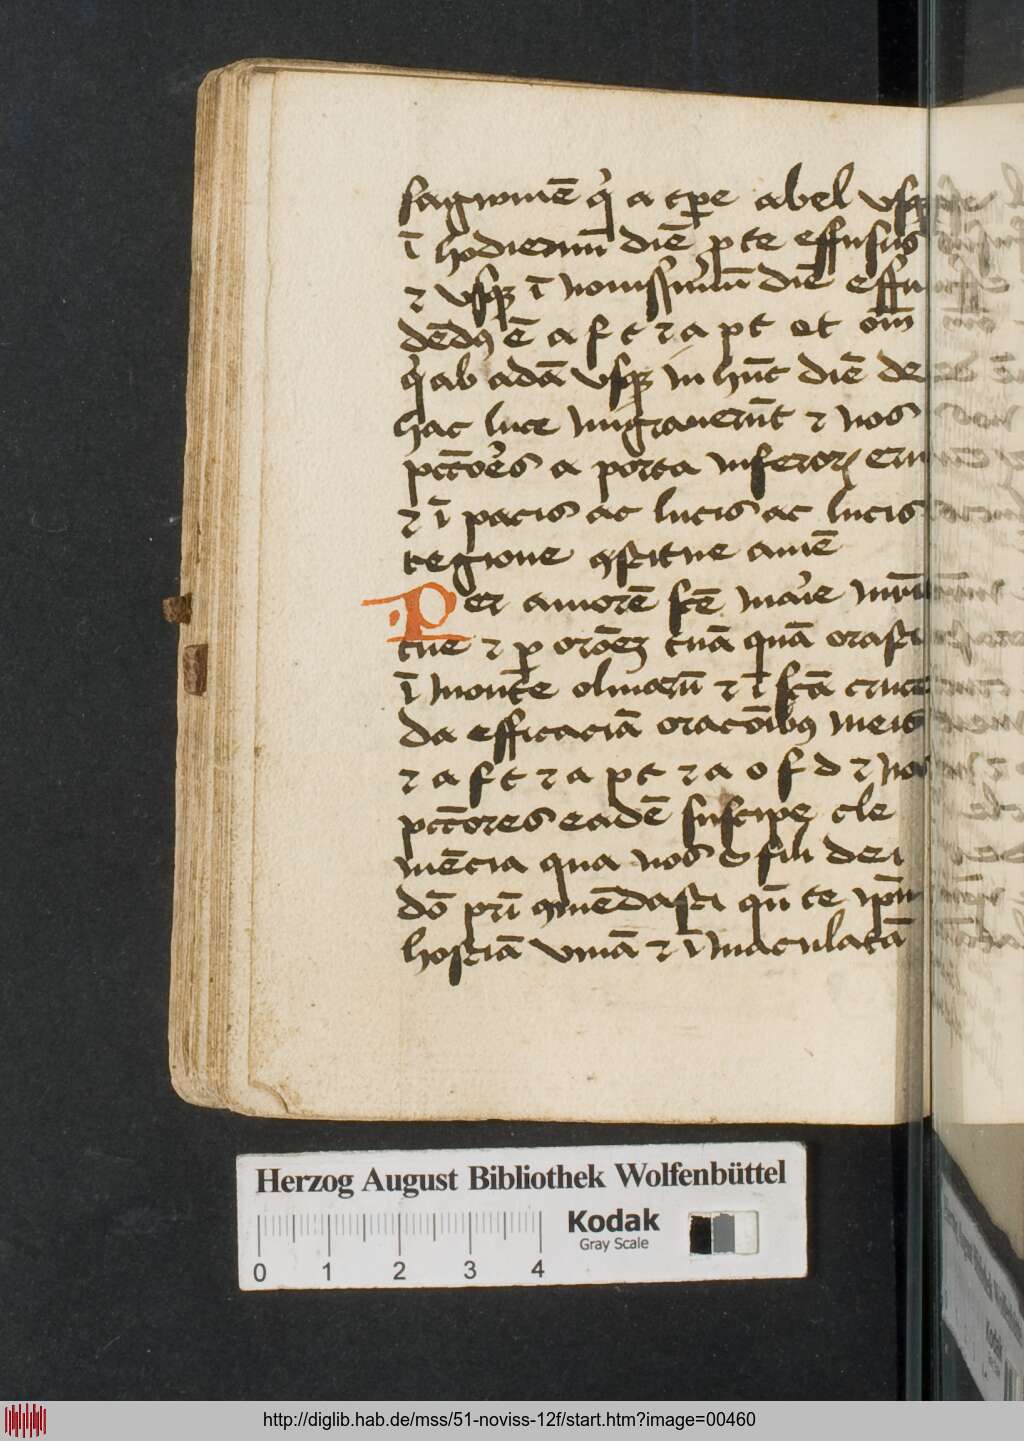 sagwinē q̇ a tꝑe abel vsq
ī hodiernū diē ꝓ te effusus
⁊ vsqꝫ ī nouissimū diē effu
dēdꝰ ē a f t ⁊ a p t et om̄
q̇ ab adā vsqꝫ in hūc diē de
hac luce migrauerūt ⁊ nos
pctōes a porta inferoꝝ eru
⁊ ī pacis ac lucis ac lucis
regione ꝯstitue amē
Per amorē scē mār̄ie
tue ⁊ ꝑ orōeꝫ tuā quā orasti
ī monte oliuarū ⁊ ī scā cruce
da efficaciā oracōibꝰ meis
⁊ a f t ⁊ a p t ⁊ a o f d ⁊ nos
pctōres eadē suscipe cle
mēcia qua nos o fili dei
dō pri ꝯmēdasti qn̄ te ipm̄
hostiā viuā ⁊ īmaculatā
Herzog August Bibliothek Wolfenbüttel
Kodak
Gray Scale
0 1 2 3 4
http://diglib.hab.de/mss/51-noviss-12f/start.htm?image=00460